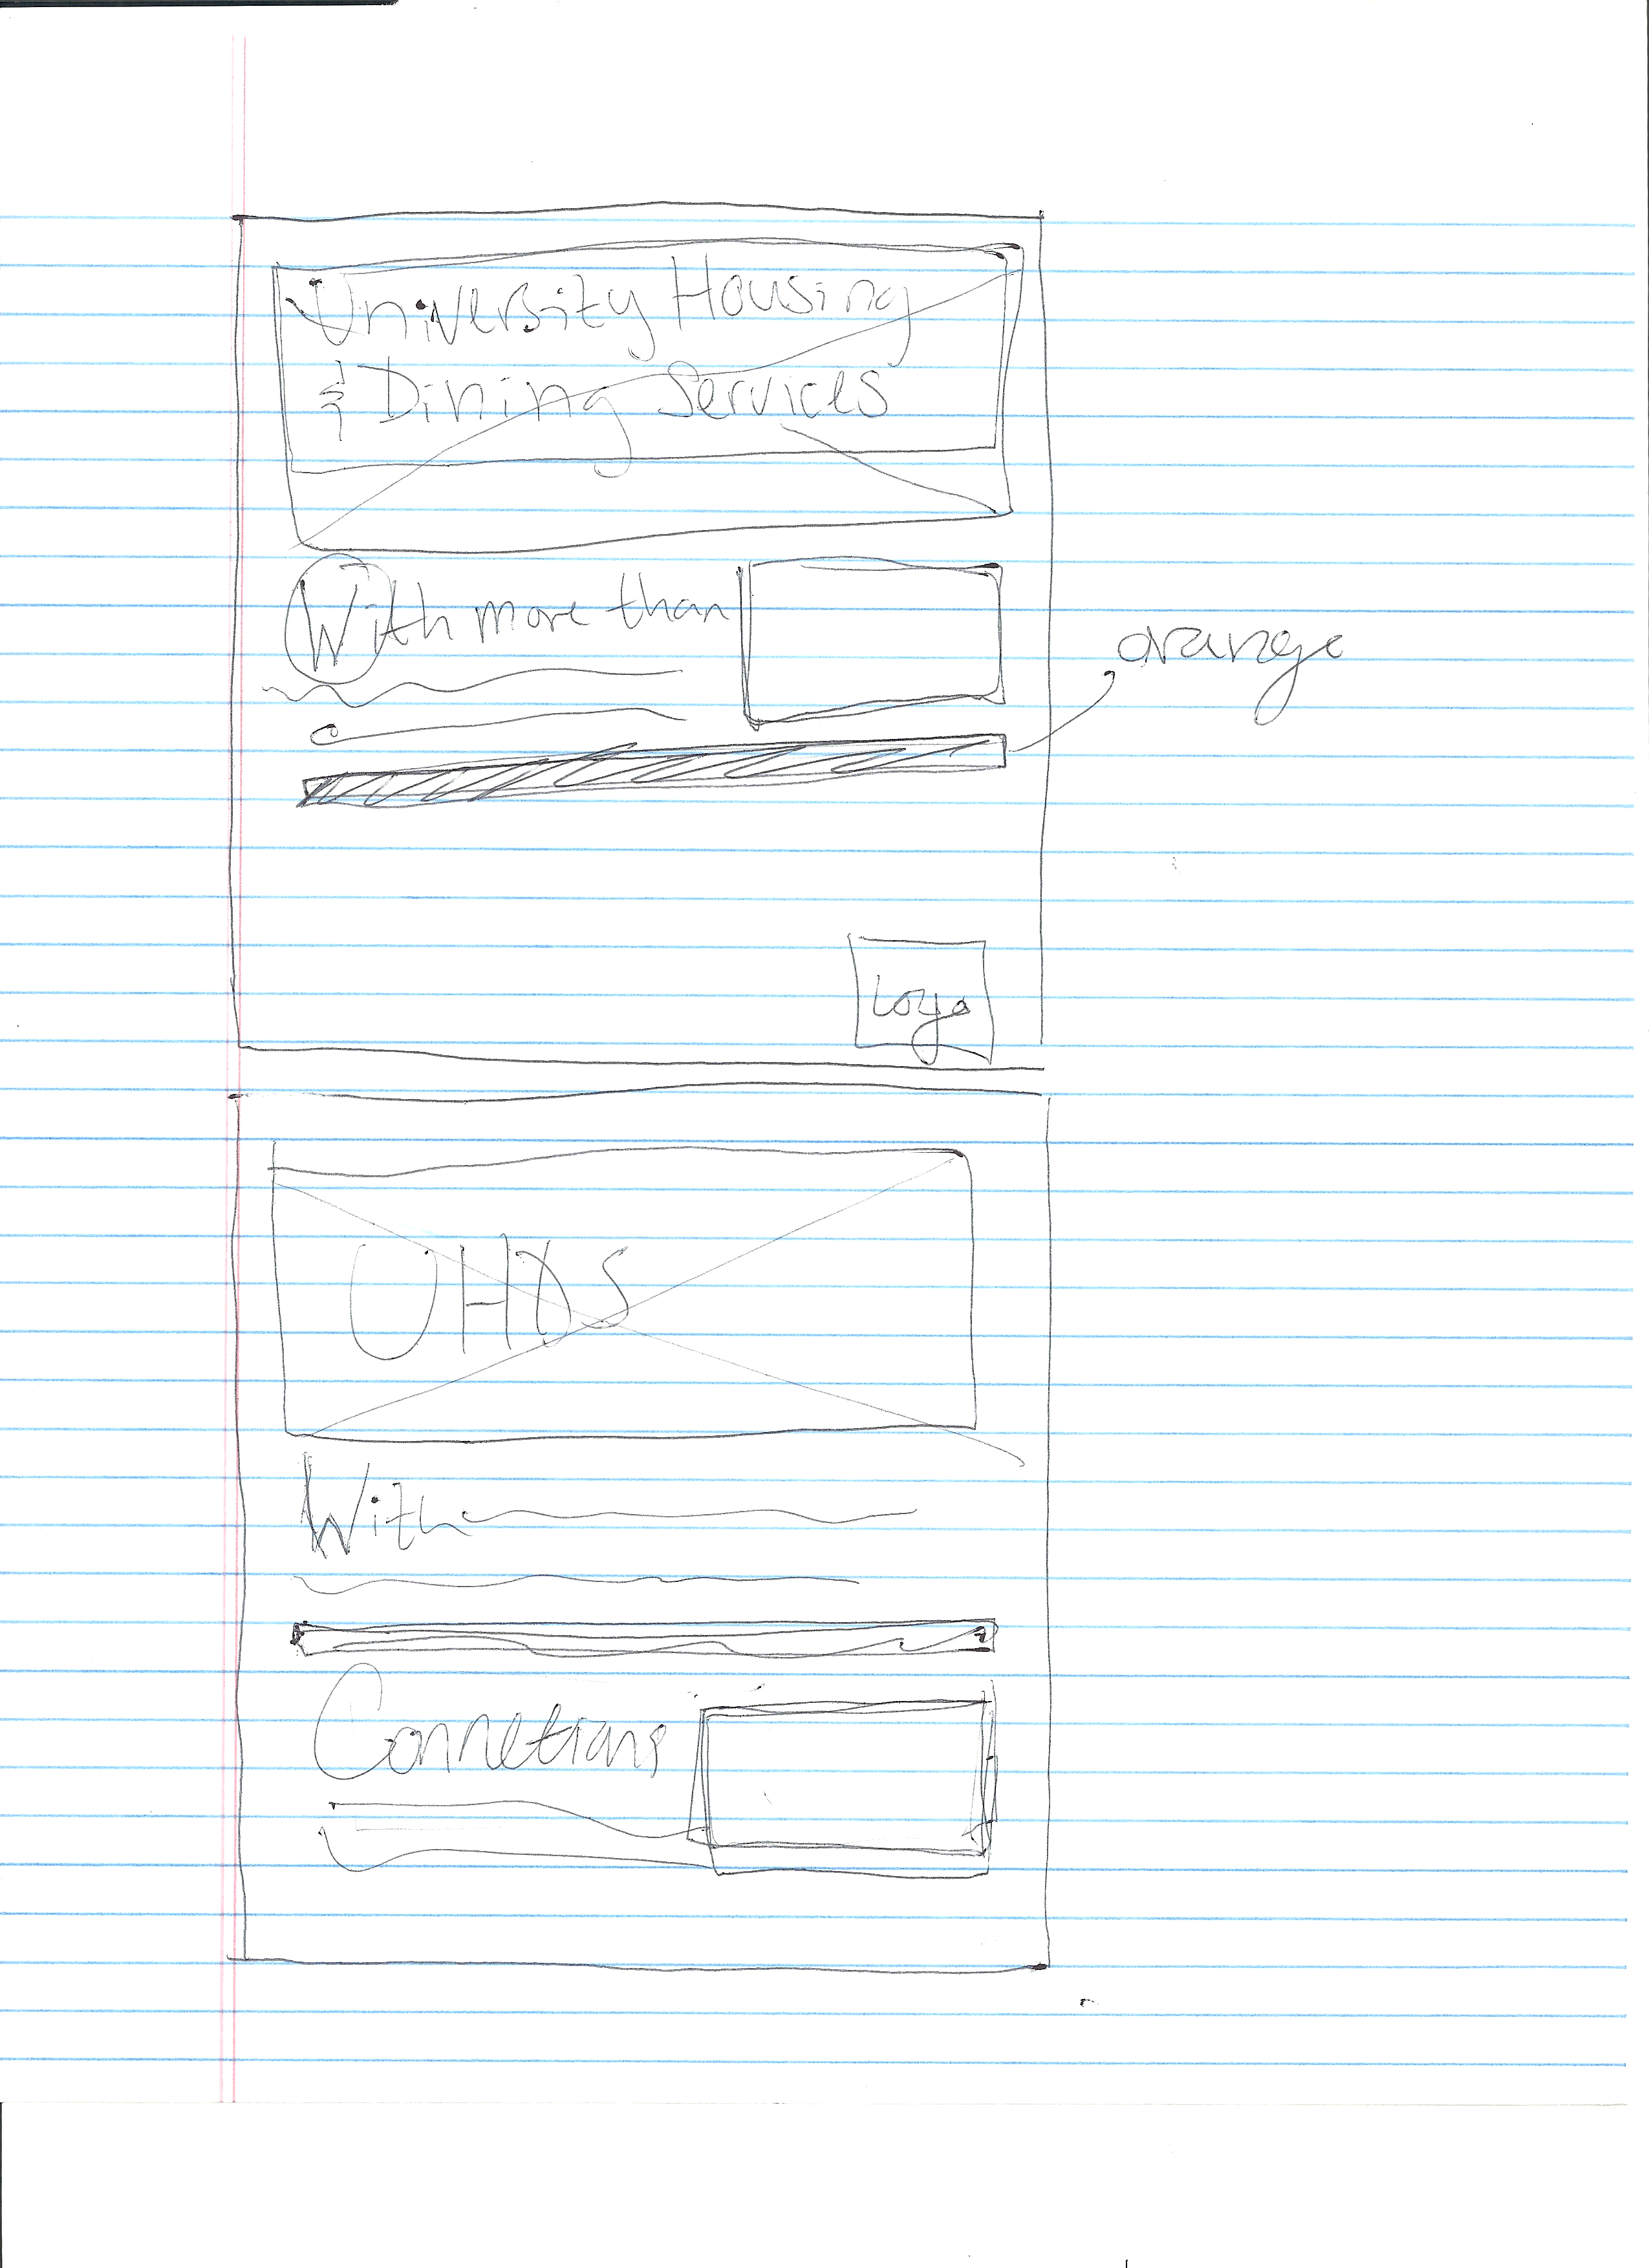 University Housing
& Dining Services
With more than
orange
Logo
UHDS
With
Connetions